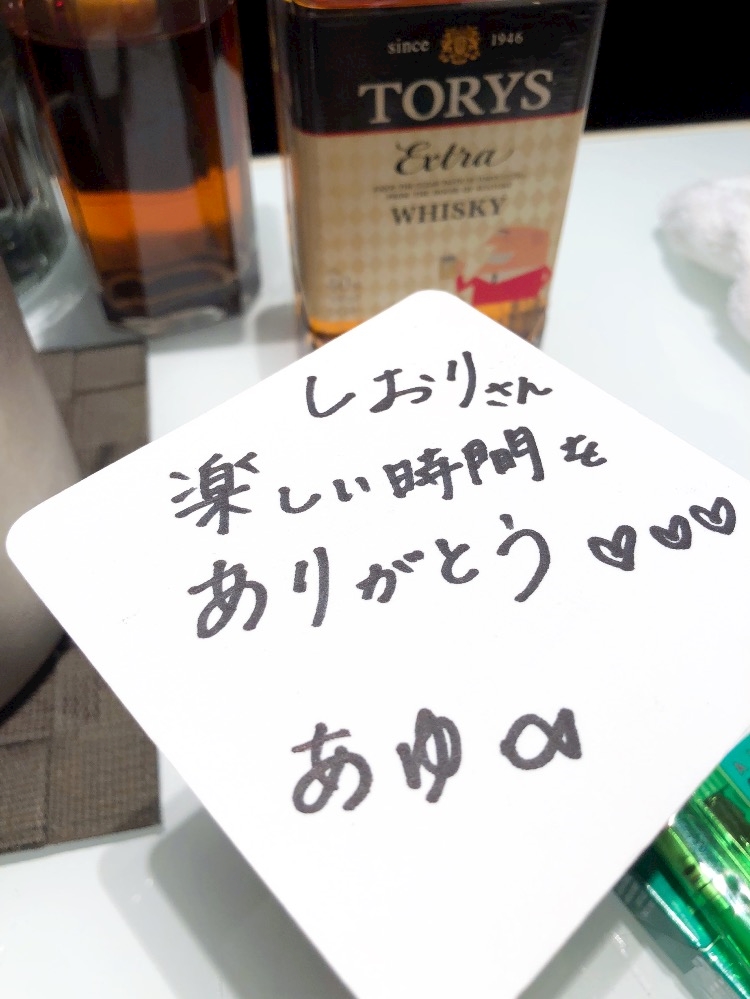 since 1946
TORYS
Extra
WHISKY
しおりさん
楽しい時間を
ありがとう♡♡♡
あゆ